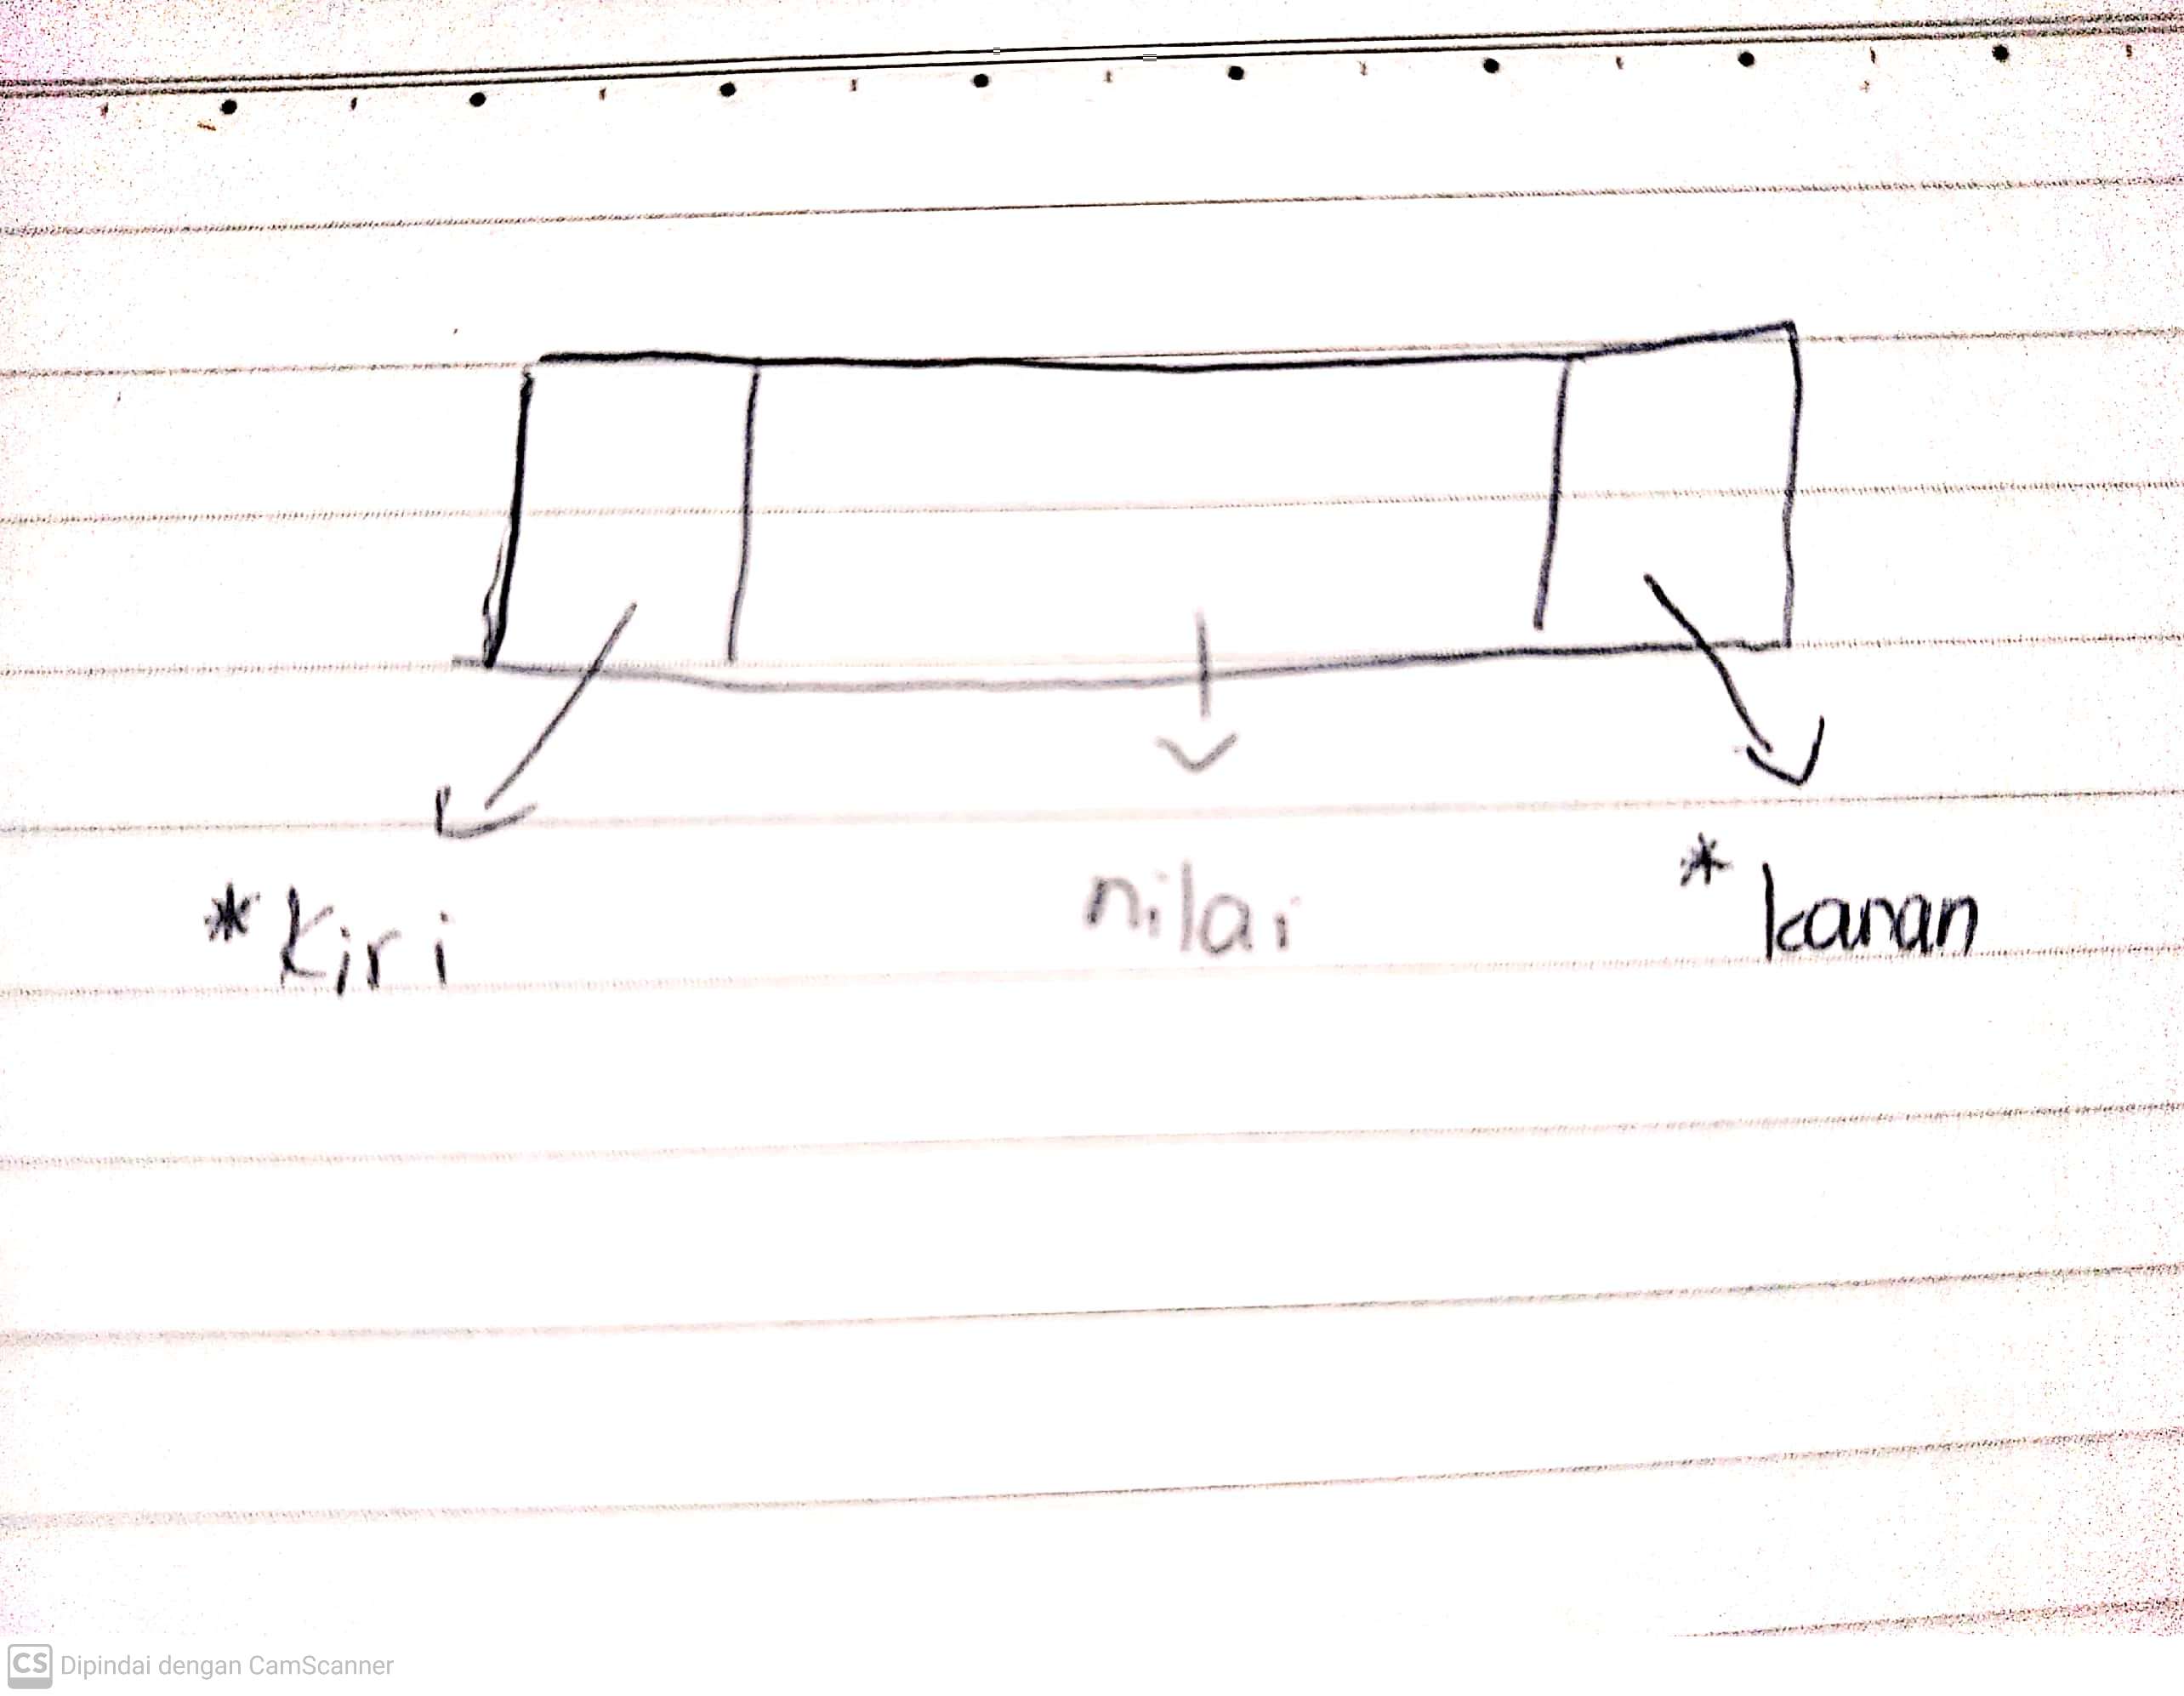 *kiri nilai *kanan
CS Dipindai dengan CamScanner